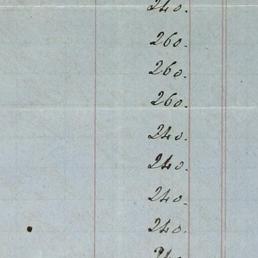 240.
260.
260.
260.
240.
240.
240.
240.
240.